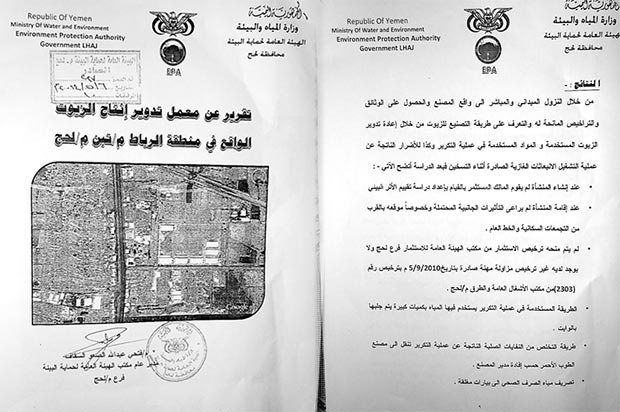 Republic Of Yemen
Ministry Of Water and Environment
Environment Protection Authority
Government LHAJ
الجمهورية اليمنية
وزارة المياه والبيئة
الهيئة العامة لحماية البيئة
محافظة لحج
EPA
الهيئة العامة لحماية البيئة م. لحج
تقرير عن معمل تدوير إنتاج الزيوت
الواقع في منطقة الرباط م/تبن م/لحج
م/فتحي عبدالله الصعو السقاف
مدير عام مكتب الهيئة العامة لحماية البيئة
فرع م/لحج
Republic Of Yemen
Ministry Of Water and Environment
Environment Protection Authority
Government LHAJ
الجمهورية اليمنية
وزارة المياه والبيئة
الهيئة العامة لحماية البيئة
محافظة لحج
EPA
النتائج :-
من خلال النزول الميداني والمباشر الى واقع المصنع والحصول على الوثائق
والتراخيص المانحة له والتعرف على طريقة التصنيع للزيوت من خلال إعادة تدوير
الزيوت المستخدمة و المواد المستخدمة في عملية التكرير وكذا للأضرار الناتجة عن
عملية التشغيل الانبعاثات الغازية الصادرة أثناء التسخين فبعد الدراسة أتضح الأتي :-
• عند إنشاء المنشأة لم يقوم المالك المستثمر بالقيام بإعداد دراسة تقييم الأثر البيئي
• عند إقامة المنشأة لم يراعى التأثيرات الجانبية المحتملة وخصوصاً موقعه بالقرب
من التجمعات السكانية والخط العام .
• لم يتم منحه ترخيص الاستثمار من مكتب الهيئة العامة للاستثمار فرع لحج ولا
يوجد لديه غير ترخيص مزاولة مهنة صادرة بتاريخ5/9/2010 م بترخيص رقم
(2303)من مكتب الأشغال العامة والطرق م/لحج.
• الطريقة المستخدمة في عملية التكرير يستخدم فيها المياه بكميات كبيرة يتم جلبها
بالوايت .
• طريقة التخلص من النفايات الصلبة الناتجة عن عملية التكرير تنقل الى مصنع
الطوب الأحمر حسب إفادة مدير المصنع .
• تصريف مياه الصرف الصحي الى بيارات مغلقة .